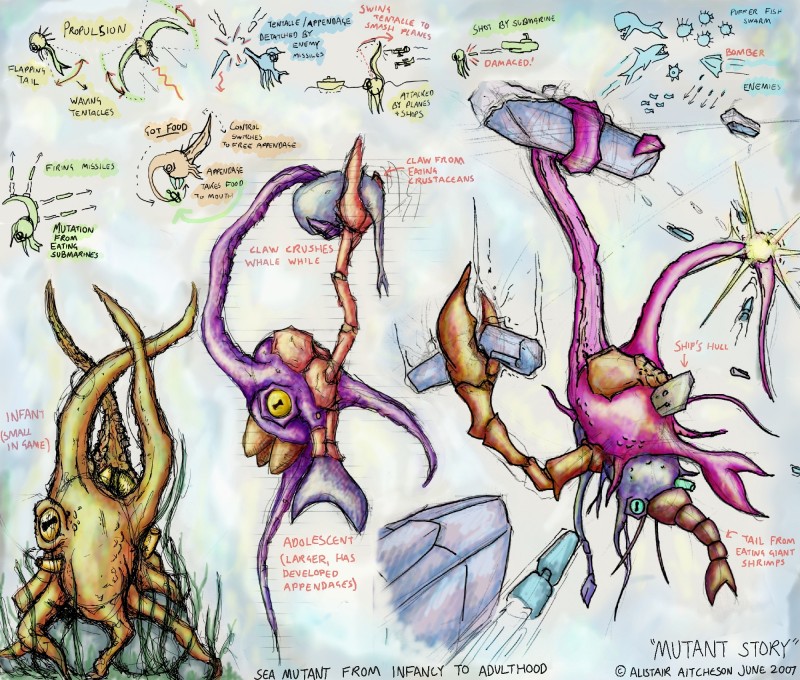 PROPULSION
FLAPPING
TAIL
WAVING
TENTACLES
TENTACLE/APPENDAGE
DETATCHED BY
ENEMY
MISSILES
SWING
TENTACLE TO
SMASH PLANES
ATTACKED
BY PLANES
+ SHIPS
SHOT BY SUBMARINE
DAMAGED!
PUFFER FISH
SWARM
BOMBER
ENEMIES
GOT FOOD
CONTROL
SWITCHES
TO FREE APPENDAGE
APPENDAGE
TAKES FOOD
TO MOUTH
FIRING MISSILES
MUTATION
FROM
EATING
SUBMARINES
CLAW FROM
EATING
CRUSTACEANS
CLAW CRUSHES
WHALE WHILE
SHIP'S HULL
INFANT
(SMALL
IN GAME)
ADOLESCENT
(LARGER, HAS
DEVELOPED
APPENDAGES)
TAIL FROM
EATING GIANT
SHRIMPS
"MUTANT STORY"
SEA MUTANT FROM INFANCY TO ADULTHOOD
© ALISTAIR AITCHESON JUNE 2007